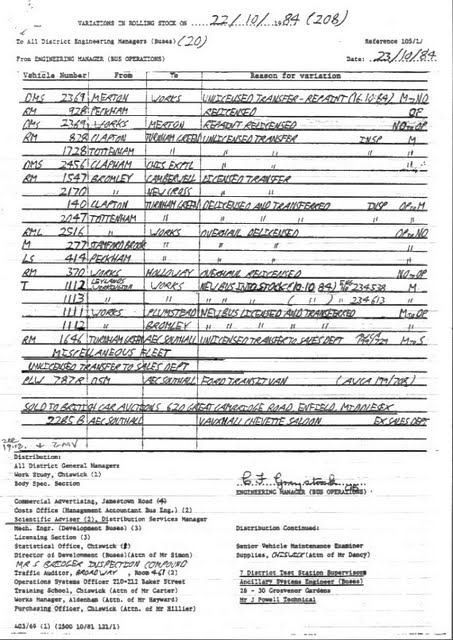 VARIATIONS IN ROLLING STOCK ON 22/10/1984 (208)
To All District Engineering Managers (Buses) (20) Reference 105/1/
From ENGINEERING MANAGER (BUS OPERATIONS) Date: 23/10/84
Vehicle Number From To Reason for variation
DMS 2369 MERTON WORKS UNLICENSED TRANSFER - REPAINT (16.10.84) M-NO
RM 928 PECKHAM RELICENSED OP
DMS 2369 WORKS MERTON REPAINT RELICENSED NO-OP
RM 838 CLAPTON TURNHAM GREEN UNLICENSED TRANSFER INSP M
1728 TOTTENHAM " " " " "
DMS 2456 CLAPHAM CHIS EXPTL " "
RM 1547 BROMLEY CAMBERWELL LICENSED TRANSFER
2170 " NEW CROSS " "
140 CLAPTON TURNHAM GREEN DELICENSED AND TRANSFERRED INSP OP to M
2047 TOTTENHAM " " " " " "
RML 2516 " WORKS OVERHAUL DELICENSED OP to NO
M 277 STAMFORD BROOK " " "
LS 414 PECKHAM " " "
RM 370 WORKS HOLLOWAY OVERHAUL RELICENSED NO-OP
T 1112 LEYLANDS WORKINGTON WORKS NEW BUS INTO STOCK (19.10.84) 234528 M
1113 " " " " ( " ) " 234613 "
1111 WORKS PLUMSTEAD NEW BUS LICENSED AND TRANSFERRED M to OP
1112 " BROMLEY " " " " "
RM 1646 TURNHAM GREEN AEC SOUTHALL UNLICENSED TRANSFER TO SALES DEPT M to S
MISCELLANEOUS FLEET
UNLICENSED TRANSFER TO SALES DEPT
PLW 787R DSM AEC SOUTHALL FORD TRANSIT VAN
SOLD TO BRITISH CAR AUCTIONS, 620 GREAT CAMBRIDGE ROAD, ENFIELD, MIDDLESEX
2285 B AEC SOUTHALL VAUXHALL CHEVETTE SALOON EX SALES DEPT
Distribution:
All District General Managers
Work Study, Chiswick (1)
Body Spec. Section
ENGINEERING MANAGER (BUS OPERATIONS)
Commercial Advertising, Jamestown Road
Costs Office (Management Accountant Bus Eng.) (2)
Scientific Adviser (2), Distribution Services Manager
Mech. Engr. (Development Buses) (3) Distribution Continued:
Licensing Section (3)
Statistical Office, Chiswick Senior Vehicle Maintenance Examiner
Director of Development (Buses)(Attn of Mr Simon) Supplies, CHISWICK (Attn of Mr Dancy)
MR S BRIDGER INSPECTION COMPOUND
Traffic Auditor, BROADWAY, Room 7 District Test Station Supervisors
Operations Systems Officer 210-212 Baker Street Ancillary Systems Engineer (Buses)
Training School, Chiswick (Attn of Mr Carter) 28 - 30 Grosvenor Gardens
Works Manager, Aldenham (Attn of Mr Hayward) Mr J Powell Technical
Purchasing Officer, Chiswick (Attn of Mr Hillier)
403/69 (1) (2500 10/81 121/1)